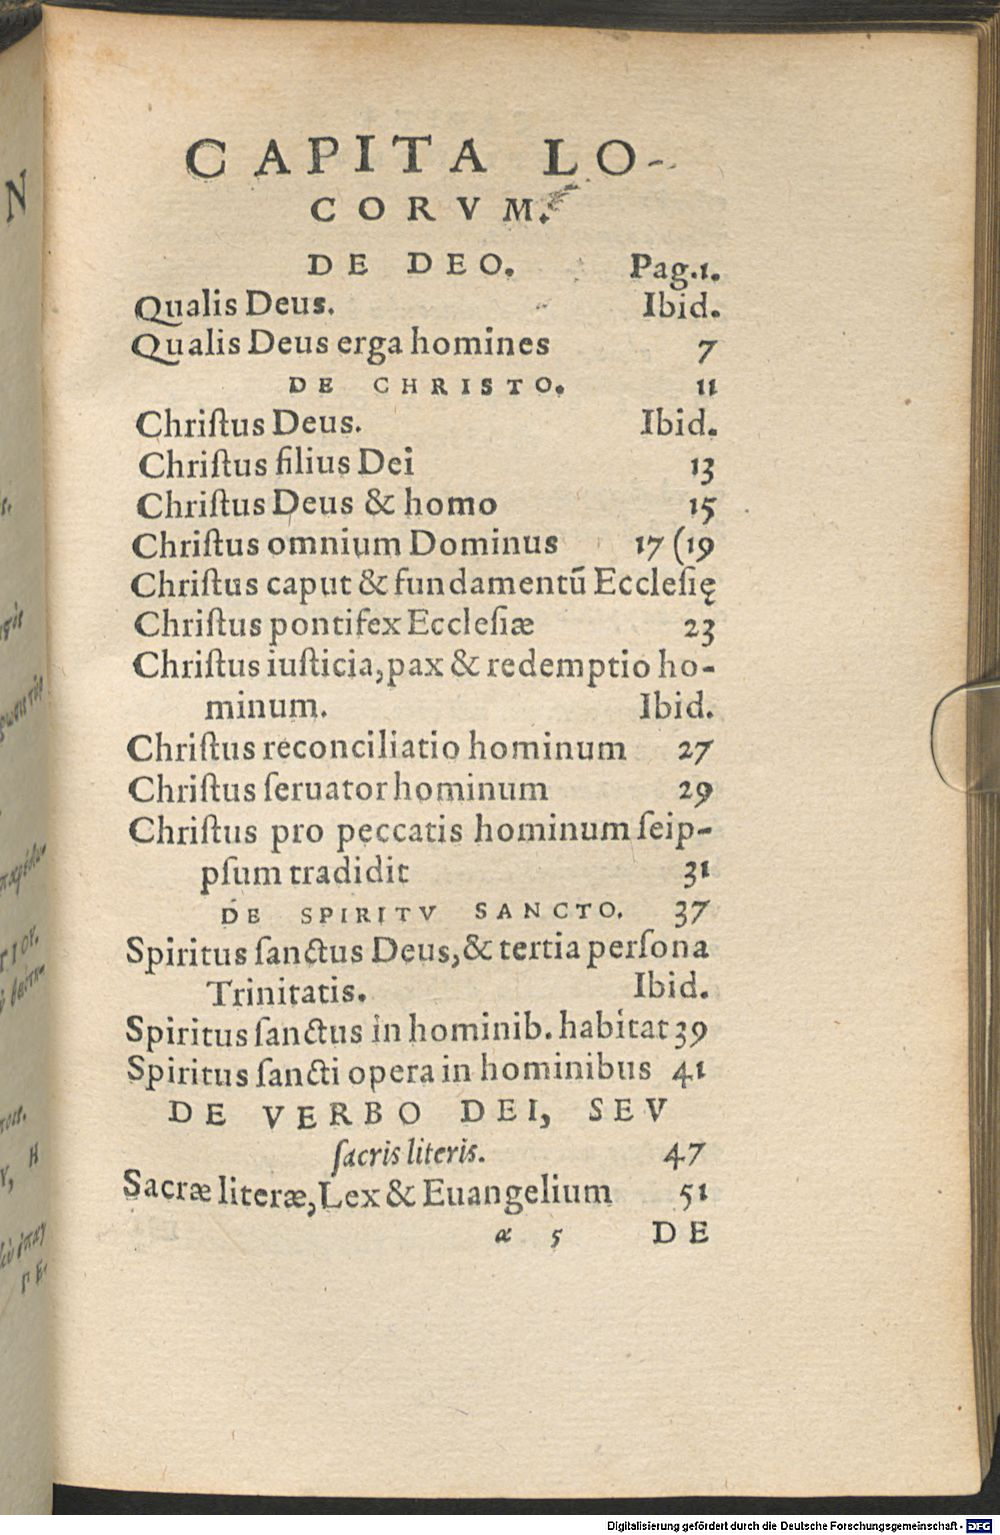 CAPITA LO-
CORVM.
DE DEO. Pag.1.
Qualis Deus. Ibid.
Qualis Deus erga homines 7
DE CHRISTO. 11
Chriſtus Deus. Ibid.
Chriſtus filius Dei 13
Chriſtus Deus & homo 15
Chriſtus omnium Dominus 17 (19
Chriſtus caput & fundamentū Eccleſię
Chriſtus pontifex Eccleſiæ 23
Chriſtus iuſticia, pax & redemptio ho-
minum. Ibid.
Chriſtus reconciliatio hominum 27
Chriſtus ſeruator hominum 29
Chriſtus pro peccatis hominum ſeip-
pſum tradidit 31
DE SPIRITV SANCTO. 37
Spiritus ſanctus Deus, & tertia perſona
Trinitatis. Ibid.
Spiritus ſanctus in hominib. habitat 39
Spiritus ſancti opera in hominibus 41
DE VERBO DEI, SEV
ſacris literis. 47
Sacræ literæ, Lex & Euangelium 51
α 5 DE
Digitalisierung gefördert durch die Deutsche Forschungsgemeinschaft - DFG